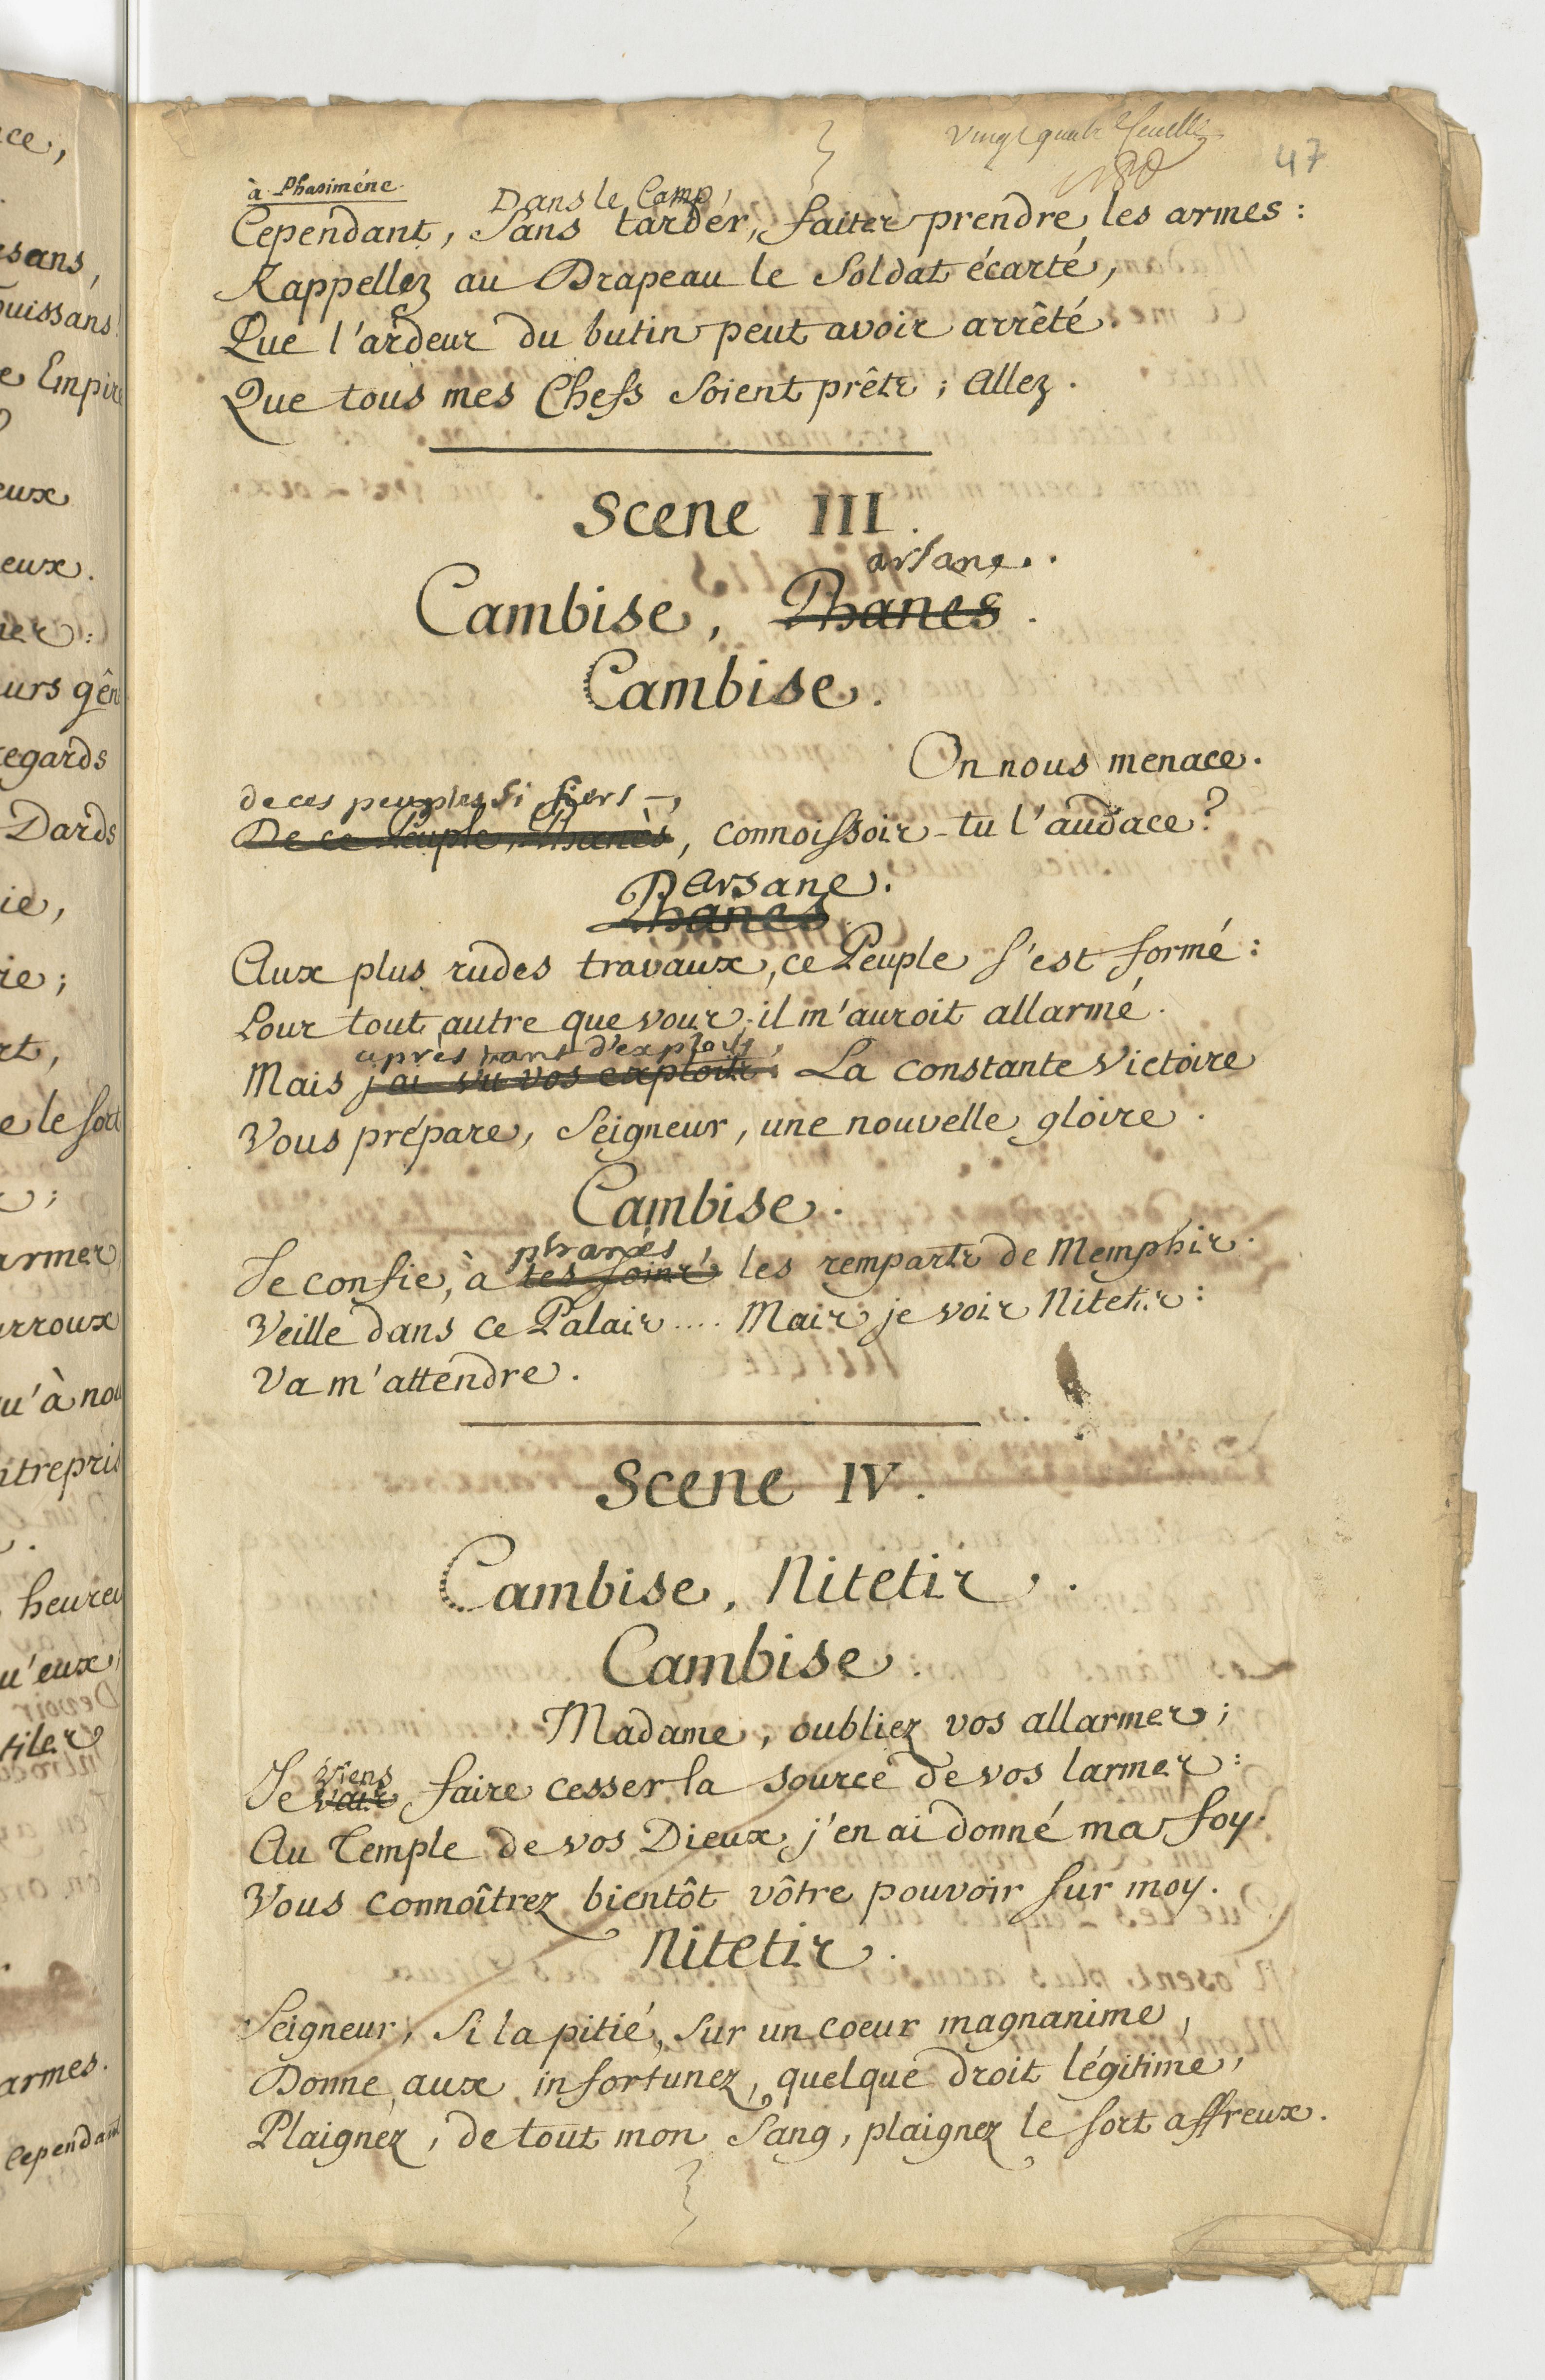 Vingt quatre feuillets
47
à Phasiméne.
Dans le Camp,
Cependant, Sans tarder, faites prendre les armes :
Rappellez au Drapeau le Soldat écarté,
Que l'ardeur du butin peut avoir arrêté.
Que tous mes Chefs Soient prêts ; allez.
Scene III.
arsane.
Cambise, Phanes.
Cambise.
On nous menace.
de ces peuples si fiers
De ce Peuple, Phanès, connoissois-tu l'audace ?
Arsane.
Phanes
Aux plus rudes travaux, ce Peuple s'est formé :
Pour tout autre que vous, il m'auroit allarmé.
après tant d'exploits,
Mais j'ai vu vos exploits : La constante Victoire
Vous prépare, Seigneur, une nouvelle gloire.
Cambise.
phanès,
Je confie, à tes soins, les remparts de Memphis.
Veille dans ce Palais .... Mais je vois Nitetis :
Va m'attendre.
Scene IV.
Cambise, Nitetis.
Cambise.
Madame, oubliez vos allarmes ;
viens
Je vais faire cesser la source de vos larmes :
Au Temple de vos Dieux, j'en ai donné ma foy.
Vous connoîtrez bientôt vôtre pouvoir sur moy.
Nitetis.
Seigneur, Si la pitié, Sur un coeur magnanime,
Donne aux infortunez, quelque droit légitime,
Plaignez, de tout mon Sang, plaignez le sort affreux.